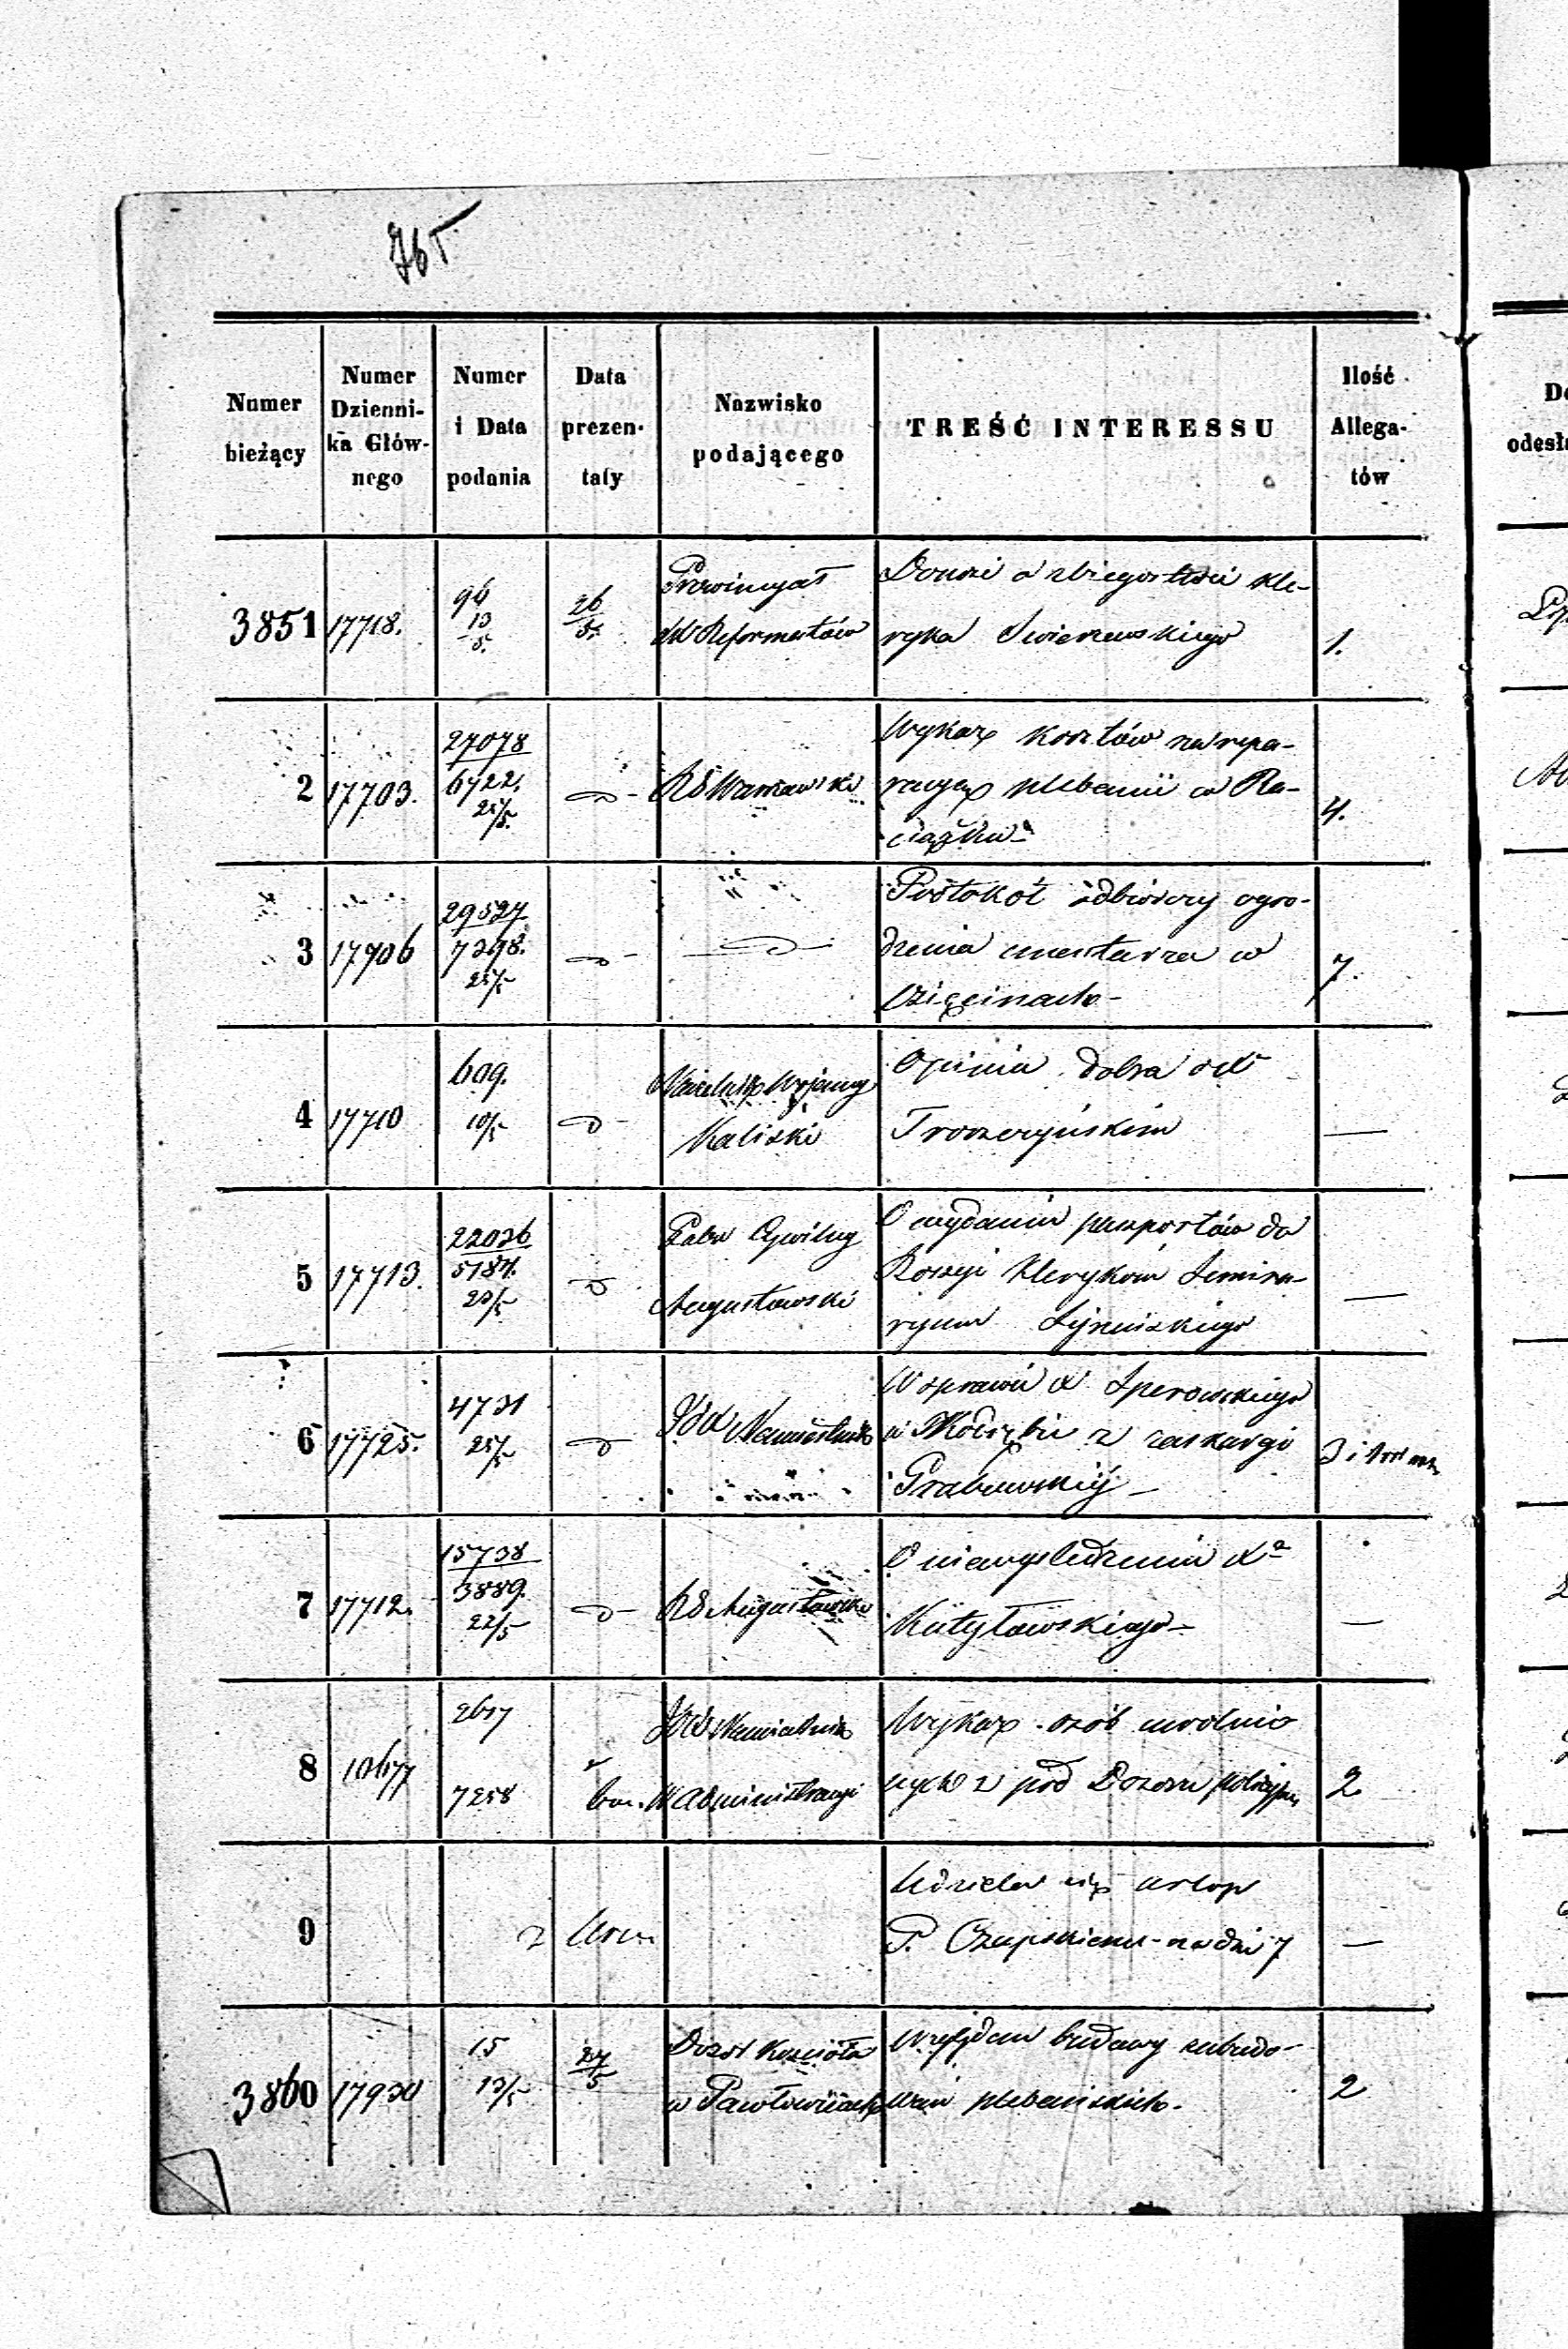 765
Numer bieżący
Numer Dzienni-ka Głów-nego
Numer i Data podania
Data prezen-taty
Nazwisko podającego
TREŚĆ INTERESSU
Ilość Allega-tów
3851 17718. 96 13/5. 26/5. Prowincyał Reformatów
Donosi o zbiegostwie kle-
ryka Swierzewskiego
1.
2 17703. 27078 6722. 25/5.
RG Warszawski
Wykaz kosztów na repa-
racyę plebanii w Ra-
ciążku
4.
3 17706 29527 7398. 25/5
Protokół odbiorczy ogro-
dzenia cmentarza w
7.
4 17710 609. 10/5
Naczelnik Wojenny
Kaliski
Opinia dobra o X
Troszczyńskim
—
5 17713. 22036 5187. 23/5
Gub Cywilny
Augustowski
O wydaniu paszportów do
Rossyi Klerykom Semina-
ryum Sejneńskiego
—
6 17725. 4731 25/5
Namiestnik
W sprawie X
z zaskargi
Grabowskiej —
3 i
7 17712. 15738 3889. 22/5
RG Augustowski
O niewyśledzeniu Xa
—
8 10677 2617 7258
Namiestnik
W Administracyi
Wykaz osób uwolnio
nych z pod Dozoru policyjn
2
9
z
Udziela się urlop
P. Czapskiemu na dni 7
—
3860 17930 15 13/5 27/5
Dozór Kościoła
w Pawłowicach
Względem budowy zabudo-
wań plebańskich.
2